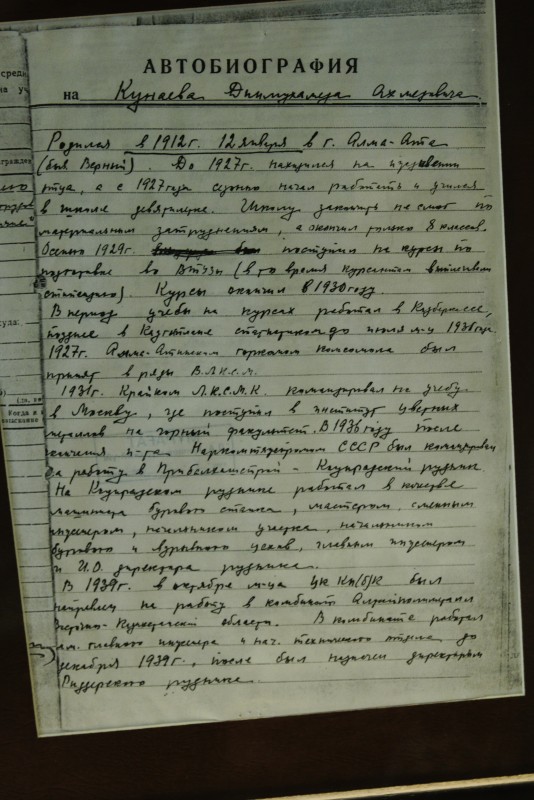 АВТОБИОГРАФИЯ
на Кунаева Динмухамеда Ахмедовича.
Родился в 1912 г. 12 января в г. Алма-Ата
(был Верный). До 1927 г. находился на иждивении
отца, а с 1927 года сезонно начал работать и учился
в школе девятилетке. Школу закончить не смог по
материальным затруднениям, а окончил только 8 классов.
Осенью 1929 г. поступил на курсы по
подготовке во ВТУЗы (в то время курсантам выплачивали
стипендию). Курсы окончил в 1930 году.
В период учебы на курсах работал в
позднее в статистиком до июля м-ца
1927 г. Алма-Атинским горкомом комсомола был
принят в ряды В.Л.К.С.М.
1931 г. Крайком Л.К.С.М.К. командировал на учебу
в Москву, где поступил в институт цветных
металлов на горный факультет. В 1936 году после
окончания и-та Наркомтяжпромом СССР был командирован
на работу в Прибалхашстрой - Коунрадский рудник
На Коунрадском руднике работал в качестве
машиниста бурового станка, мастером, сменным
инженером, начальником участка, начальником
бурового и взрывного цехов, главным инженером
и И.О. директора рудника.
В 1939 г. в октябре м-ца ЦК КП(б)К был
направлен на работу в комбинат Алтайполиметалл
Восточно-Казахстанской области. В комбинате работал
зам. главного инженера и нач. технического отдела до
декабря 1939 г., после был назначен директором
Риддерского рудника.